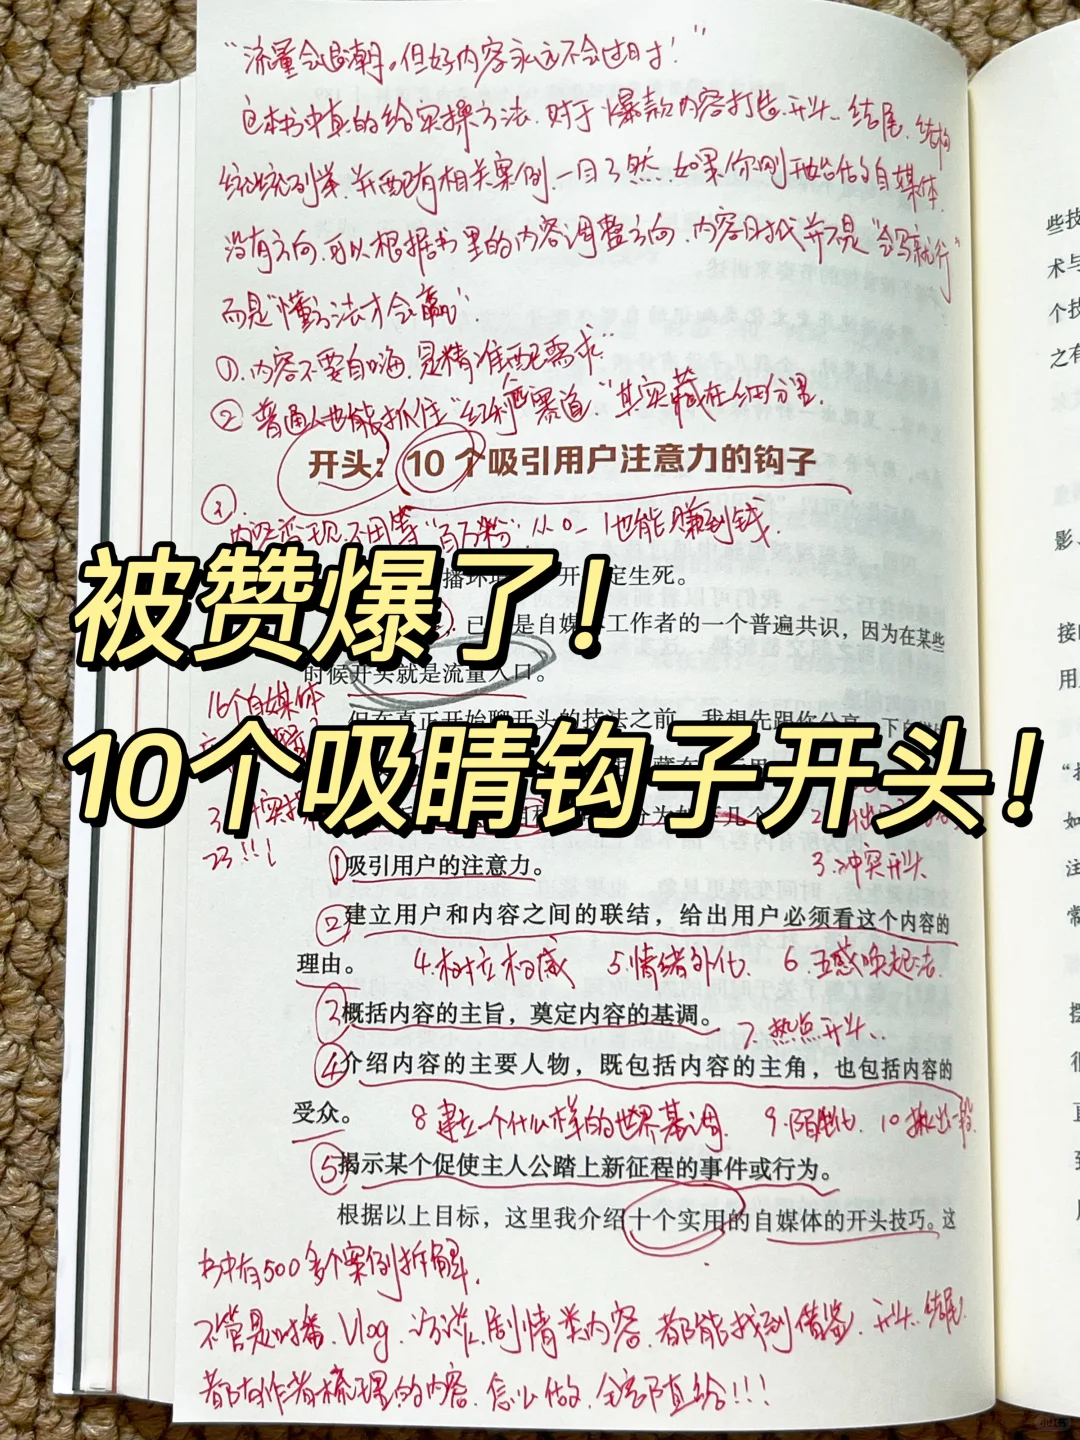 “流量会退潮。但好内容永远不会过时！”
这本书中真的给实操方法，对于爆款内容打造，开头、结尾、结构
统统列举，并配有相关案例，一目了然，如果你刚开始做自媒体，
没有方向，可以根据书里的内容调整方向，内容时代并不是“会写就行”
而是“懂方法才会赢”
①.内容不要自嗨，是精准匹配需求”
② 普通人也能抓住“红利 赛道，“其实藏在细分里．
开头：10 个吸引用户注意力的钩子
③.
内容变现，不用等“百万粉”，从0-1也能赚到钱．
被赞爆了！
播环 开 定生死。
已 是自媒 工作者的一个普遍共识，因为在某些
时候开头就是流量入口。
16个自媒体
但在真正开始聊开头的技法之前，我想先跟你分享一下
10个吸睛钩子开头！
分为 几个
3.冲突开头
①吸引用户的注意力。
②建立用户和内容之间的联结，给出用户必须看这个内容的
理由。
4.树立权威 5.情绪外化． 6.五感唤起法．
③概括内容的主旨，奠定内容的基调。
7.热点开头..
④介绍内容的主要人物，既包括内容的主角，也包括内容的
受众。
8 建立一个什么样的世界基调． 9.陌生化 10 揪出一段
⑤揭示某个促使主人公踏上新征程的事件或行为。
根据以上目标，这里我介绍十个实用的自媒体的开头技巧。这
书中有500多个案例拆解．
不管是口播、Vlog、访谈、剧情类内容，都能找到借鉴，开头、结尾，
都有作者梳理的内容，怎么做，全部直给！！！
些技
术与
个技
之有
影、
接
用
“
如
注
常
很
直
到